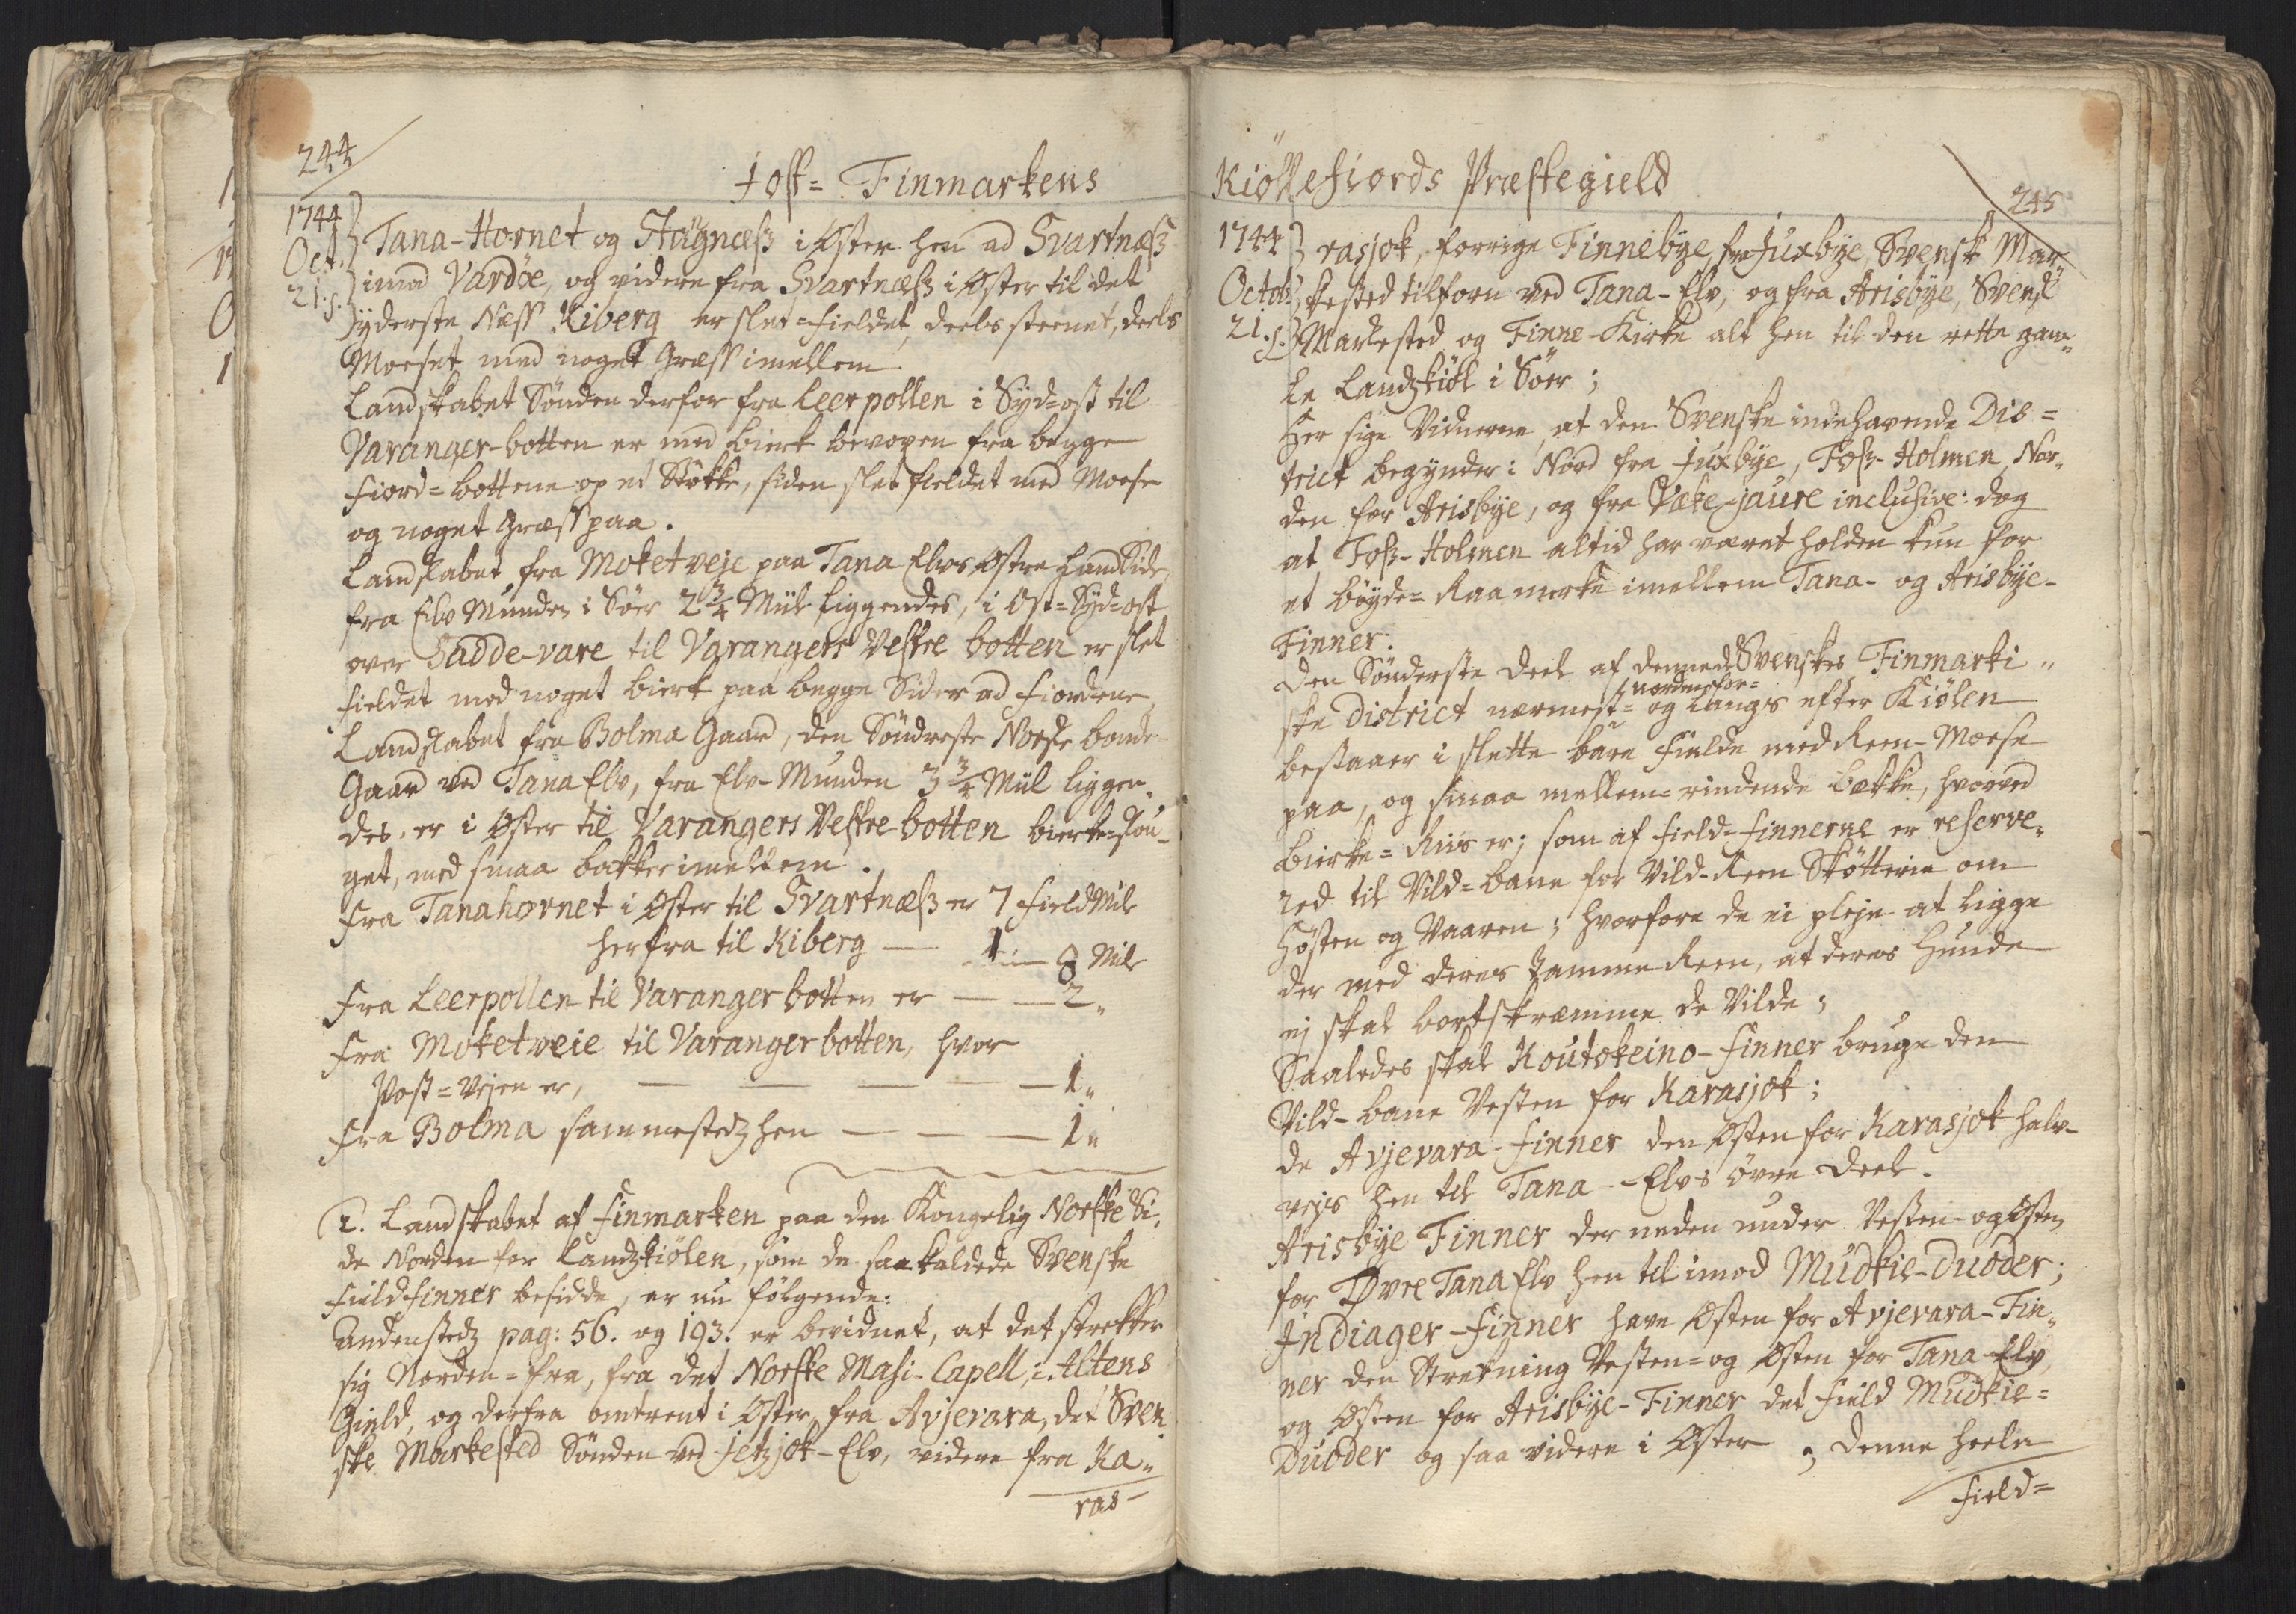 244
Jost= Finmarkens
1744
Oct.
21. s.
Tana-Hornet og Stägnæss i Øster hen ad Svartnæss
imod Vardøe, og videre fra Svartnæss i Øster til det
yderste Næss Kiberg er slet=Fieldet, deels steenet, deels
Moeset med noget Græss imellem
Landskabet Sønden derfor fra Leerpollen i Syd=ost til
Varanger-botten er med birk bevoxen fra begge
Fiord=bottene op et Støkke, siden slet fieldet med Moese
og noget Græss paa.
Landskabet fra Moketveje paa Tana Elvs Østre Landside,
fra Elv Munden i Søer 2 3/4 Miil liggendes, i Ost=Syd=ost
over Sadde-vare til Varangers Vestre botten er slet
Fieldet med noget birk paa begge Sider ad Fiordene
Landskabet fra Bolma Gaard, den Söndreste Norske bonde
Gaard ved Tana Elv, fra Elv-Munden 3 3/4 Miil liggen,,
des, er i Øster til Varangers Vestre botten birke=skou-
get, med smaa bakker imellem.
Fra Tanahornet i Øster til Svartnæss er 7 Field Mile
herfra til Kiberg — 1. — 8 Mile
Fra Leerpollen til Varangerbotten er — — 2,,
Fra Moketveie til Varangerbotten, hvor
Post=Vejen er, — — — — — 1,,
Fra Bolma sammestedz hen — — — 1,,
2. Landskabet af Finmarken paa den Kongelig Norske Si,,
de Norden for Landzkiölen, som de saakaldede Svenske
Fieldfinner besidde, er nu følgende:
Andenstedz pag: 56. og 193. er bevidnet, at det strekker
sig Norden=fra, fra det Norske Masi-Capell, i Altens
Gield, og derfra omtrent i Øster fra Avjevara, det Sven
ske Markested Sønden ved Jetzjok-Elv, videre fra Ka,,
ras-
Kiöllefiords Præstegield
245
1744
Octob.
21. s.
rasjok, forrige Finnebye, fra Juxbye, Svensk Mar
kested tilforn ved Tana-Elv, og fra Arisbye, Svensk
Markested og Finne-Kirke alt hen til den rette gam,,
le Landzkiöl i Söer;
Her sige Vidnerne, at den Svenske indehavende Dis=
trict begynder i Nord fra Juxbye, Foss-Holmen, Nor,,
den for Arisbye, og fra Væke-jaure inclusive: dog
at Foss-Holmen altid har været holden kun for
et böyde=Raamerke imellem Tana- og Arisbye-
Finner.
Den Sønderste Deel af Svenskes Finmarki,,
ske District nærmest= nordenfor= og langs efter Kiölen
bestaaer i slette bare Fielde med Reen-Moese
paa, og smaa mellem=rindende Bekke, hvorved
birke=Riis er; som af Field-Finnerne er reserve,,
red til Vild=bane for Vild-Reen Skötterie om
Høsten og Vaaren; hvorfore de ei pleje at ligge
der med deres Tamme Reen, at deres Hunde
ej skal bortskræmme de Vilde;
Saaledes skal Koutokeino-Finner bruge den
Vild-bane Vesten for Karasjok;
de Avjevara-Finner den Østen for Karasjok halv-
vejs hen til Tana-Elvs övre Deel.
Arisbye Finner der neden under Vesten- og Østen
for Øvre Tana Elv hen til imod Mudkie-Duoder;
Indiager-Finner have Østen for Avjevara-Fin,,
ner den Strekning Vesten= og Østen for Tana Elv
og Østen for Arisbye-Finner det Field Mudkie=
Duoder og saa videre i Øster; Denne heele
Field=